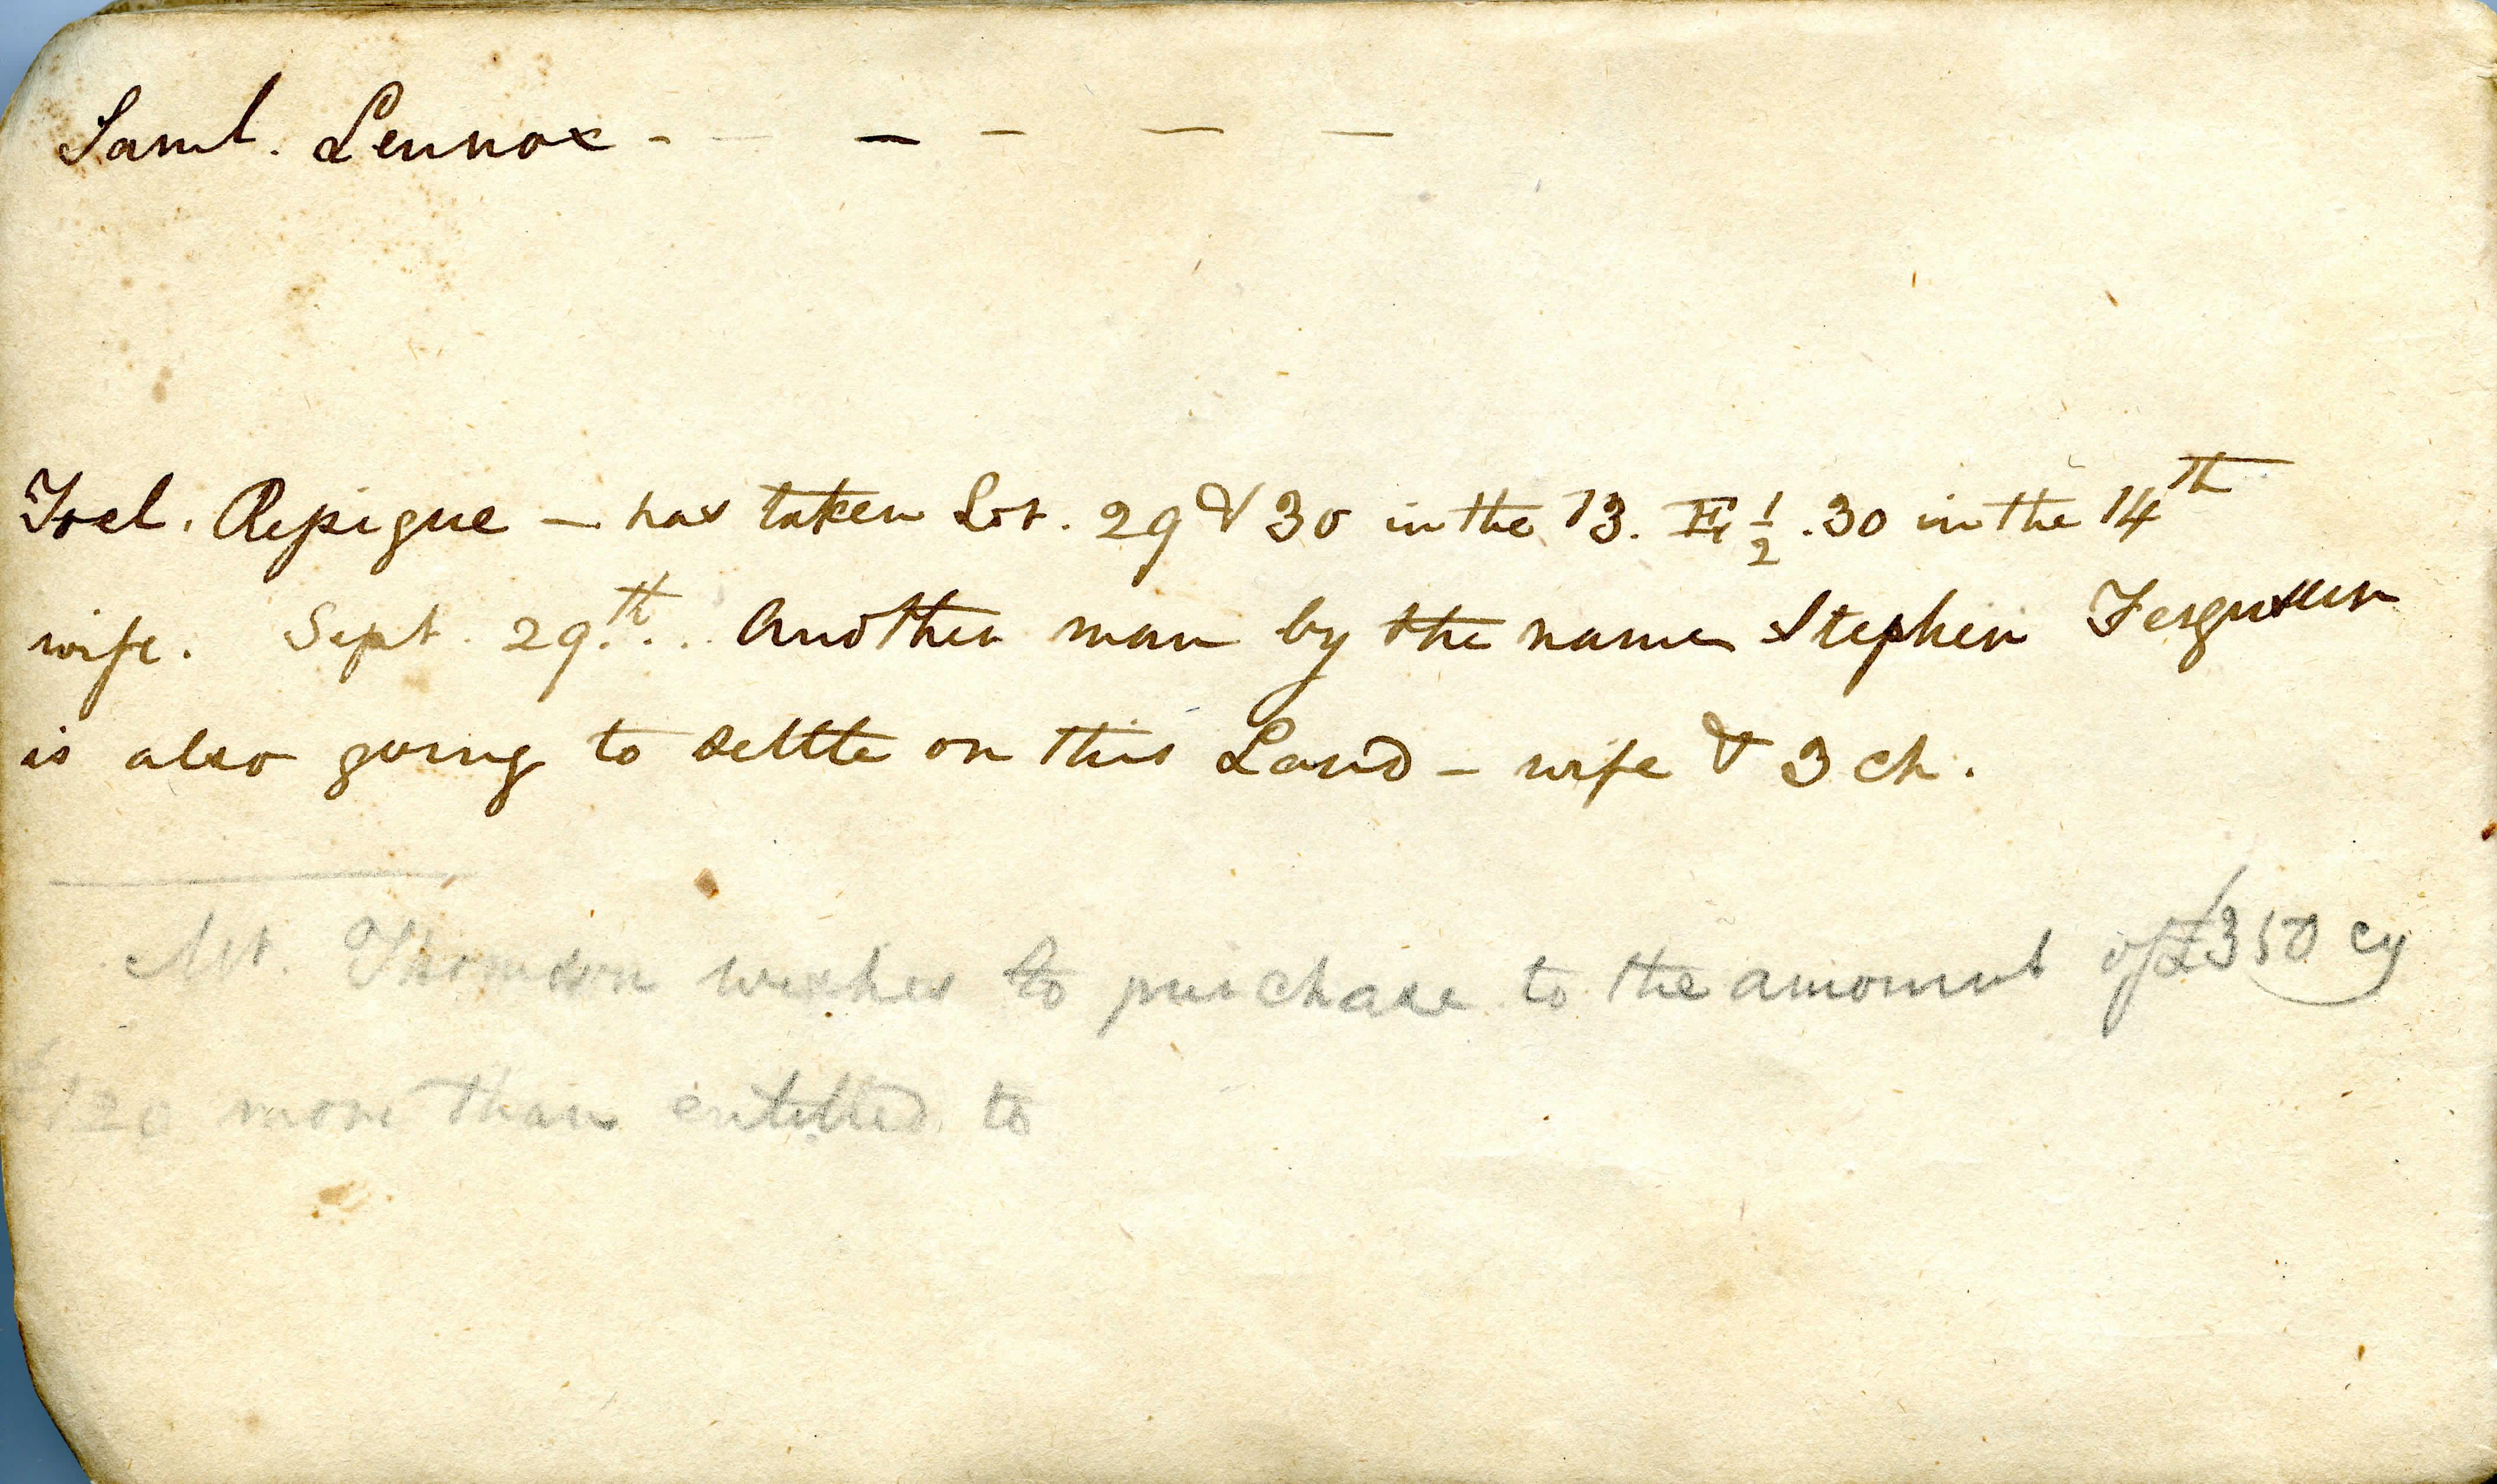 Saml. Lennox - - - - - -
Joel. Repigue - has taken Lot. 29 & 30 in the 13. E 1/2. 30 in the 14th
wife. Sept. 29th.. Another man by the name Stephen Ferguson
is also going to settle on this Land - wife & 3 ch.
Mr. Thomson wishes to purchase to the amount of £350 cy
£120 more than entitled to